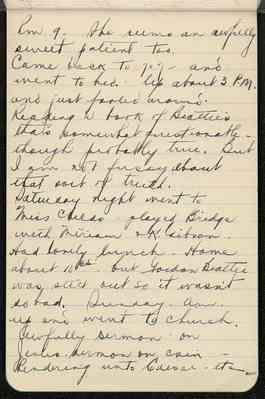 Rm 9. She seems an awfully
sweet patient too.
Came back to 707 and
went to bed. Up about 3 P.M.
and just fooled around.
Reading a book of Beatties
that's somewhat questionable -
though probably true. But
I am not fussy about
that sort of truth.
Saturday night went to
Miss - played Bridge
with Miriam & K. Gibson.
Had lovely lunch. Home
about 10 but Gordon Beattie
was, it'd out so it wasn't
so bad. Sunday. Am
up and went to Church.
Awfully sermon on
Jesus sermon on coin -
Rendering unto Caesar - etc -